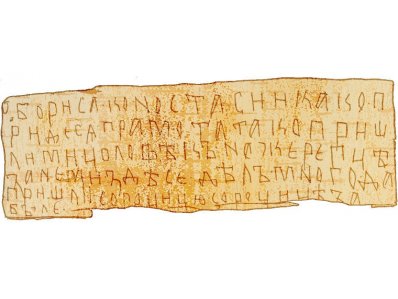 · БОРИСА КО НОСТАСИИ КАКО П
РИДЕ СѦ ГРАМОТА ТАКО ПРИШ
ЛИ МИ ЦОЛОВѢКЪ НА ЖЕРЕПЦѢ
ЗАНЕ МИ ЗДѢСЕ ДѢЛЪ МНОГО ДА
ПРИШЛИ СОРОЦИЦЮ СОРОЦИЦѢ ЗА
БЫЛЕ